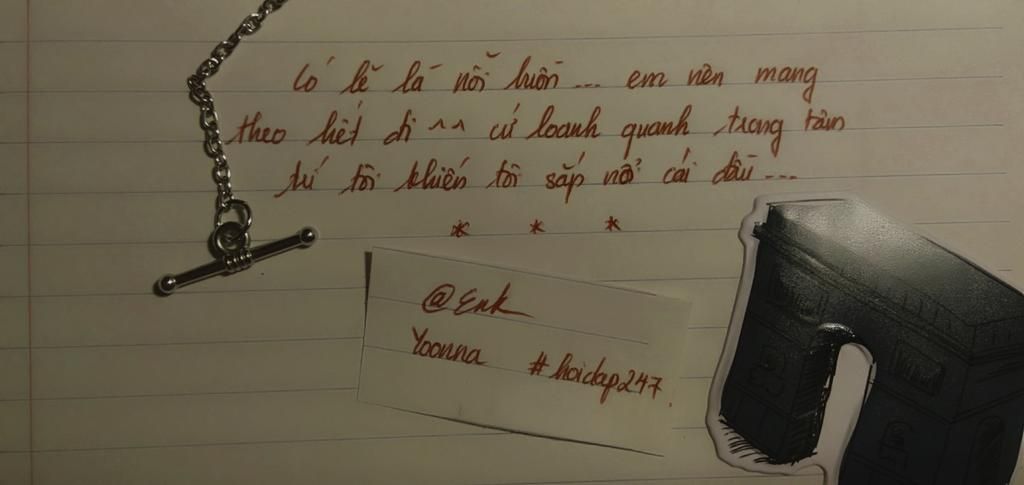 Có lẽ là nỗi buồn ... em nên mang
theo hết đi ^^ cứ loanh quanh trong tâm
trí tôi khiến tôi sắp nổ cái đầu ...
* * *
@Enk
Yoonna #hoidap247.